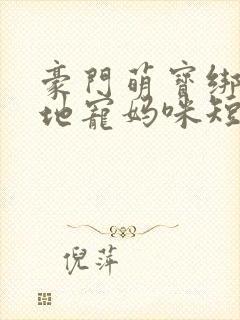 豪門萌寶綁
地寵媽咪短
倪萍